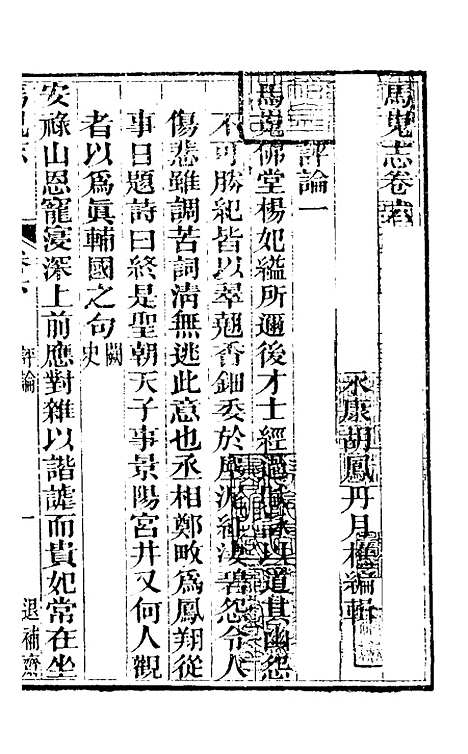 馬嵬志卷六
永康胡鳳丹月樵編輯
評論一
馬嵬佛堂楊妃縊所邇後才士經過賦詠以道其幽怨
不可勝紀皆以翠翹香鈿委於塵泥紅淒碧怨令人
傷悲雖調苦詞清無逃此意也丞相鄭畋爲鳳翔從
事日題詩曰終是聖朝天子事景陽宮井又何人觀
者以爲眞輔國之句闕史
安祿山恩寵寖深上前應對雜以諧謔而貴妃常在坐
馬嵬志
評論
一
退補齋